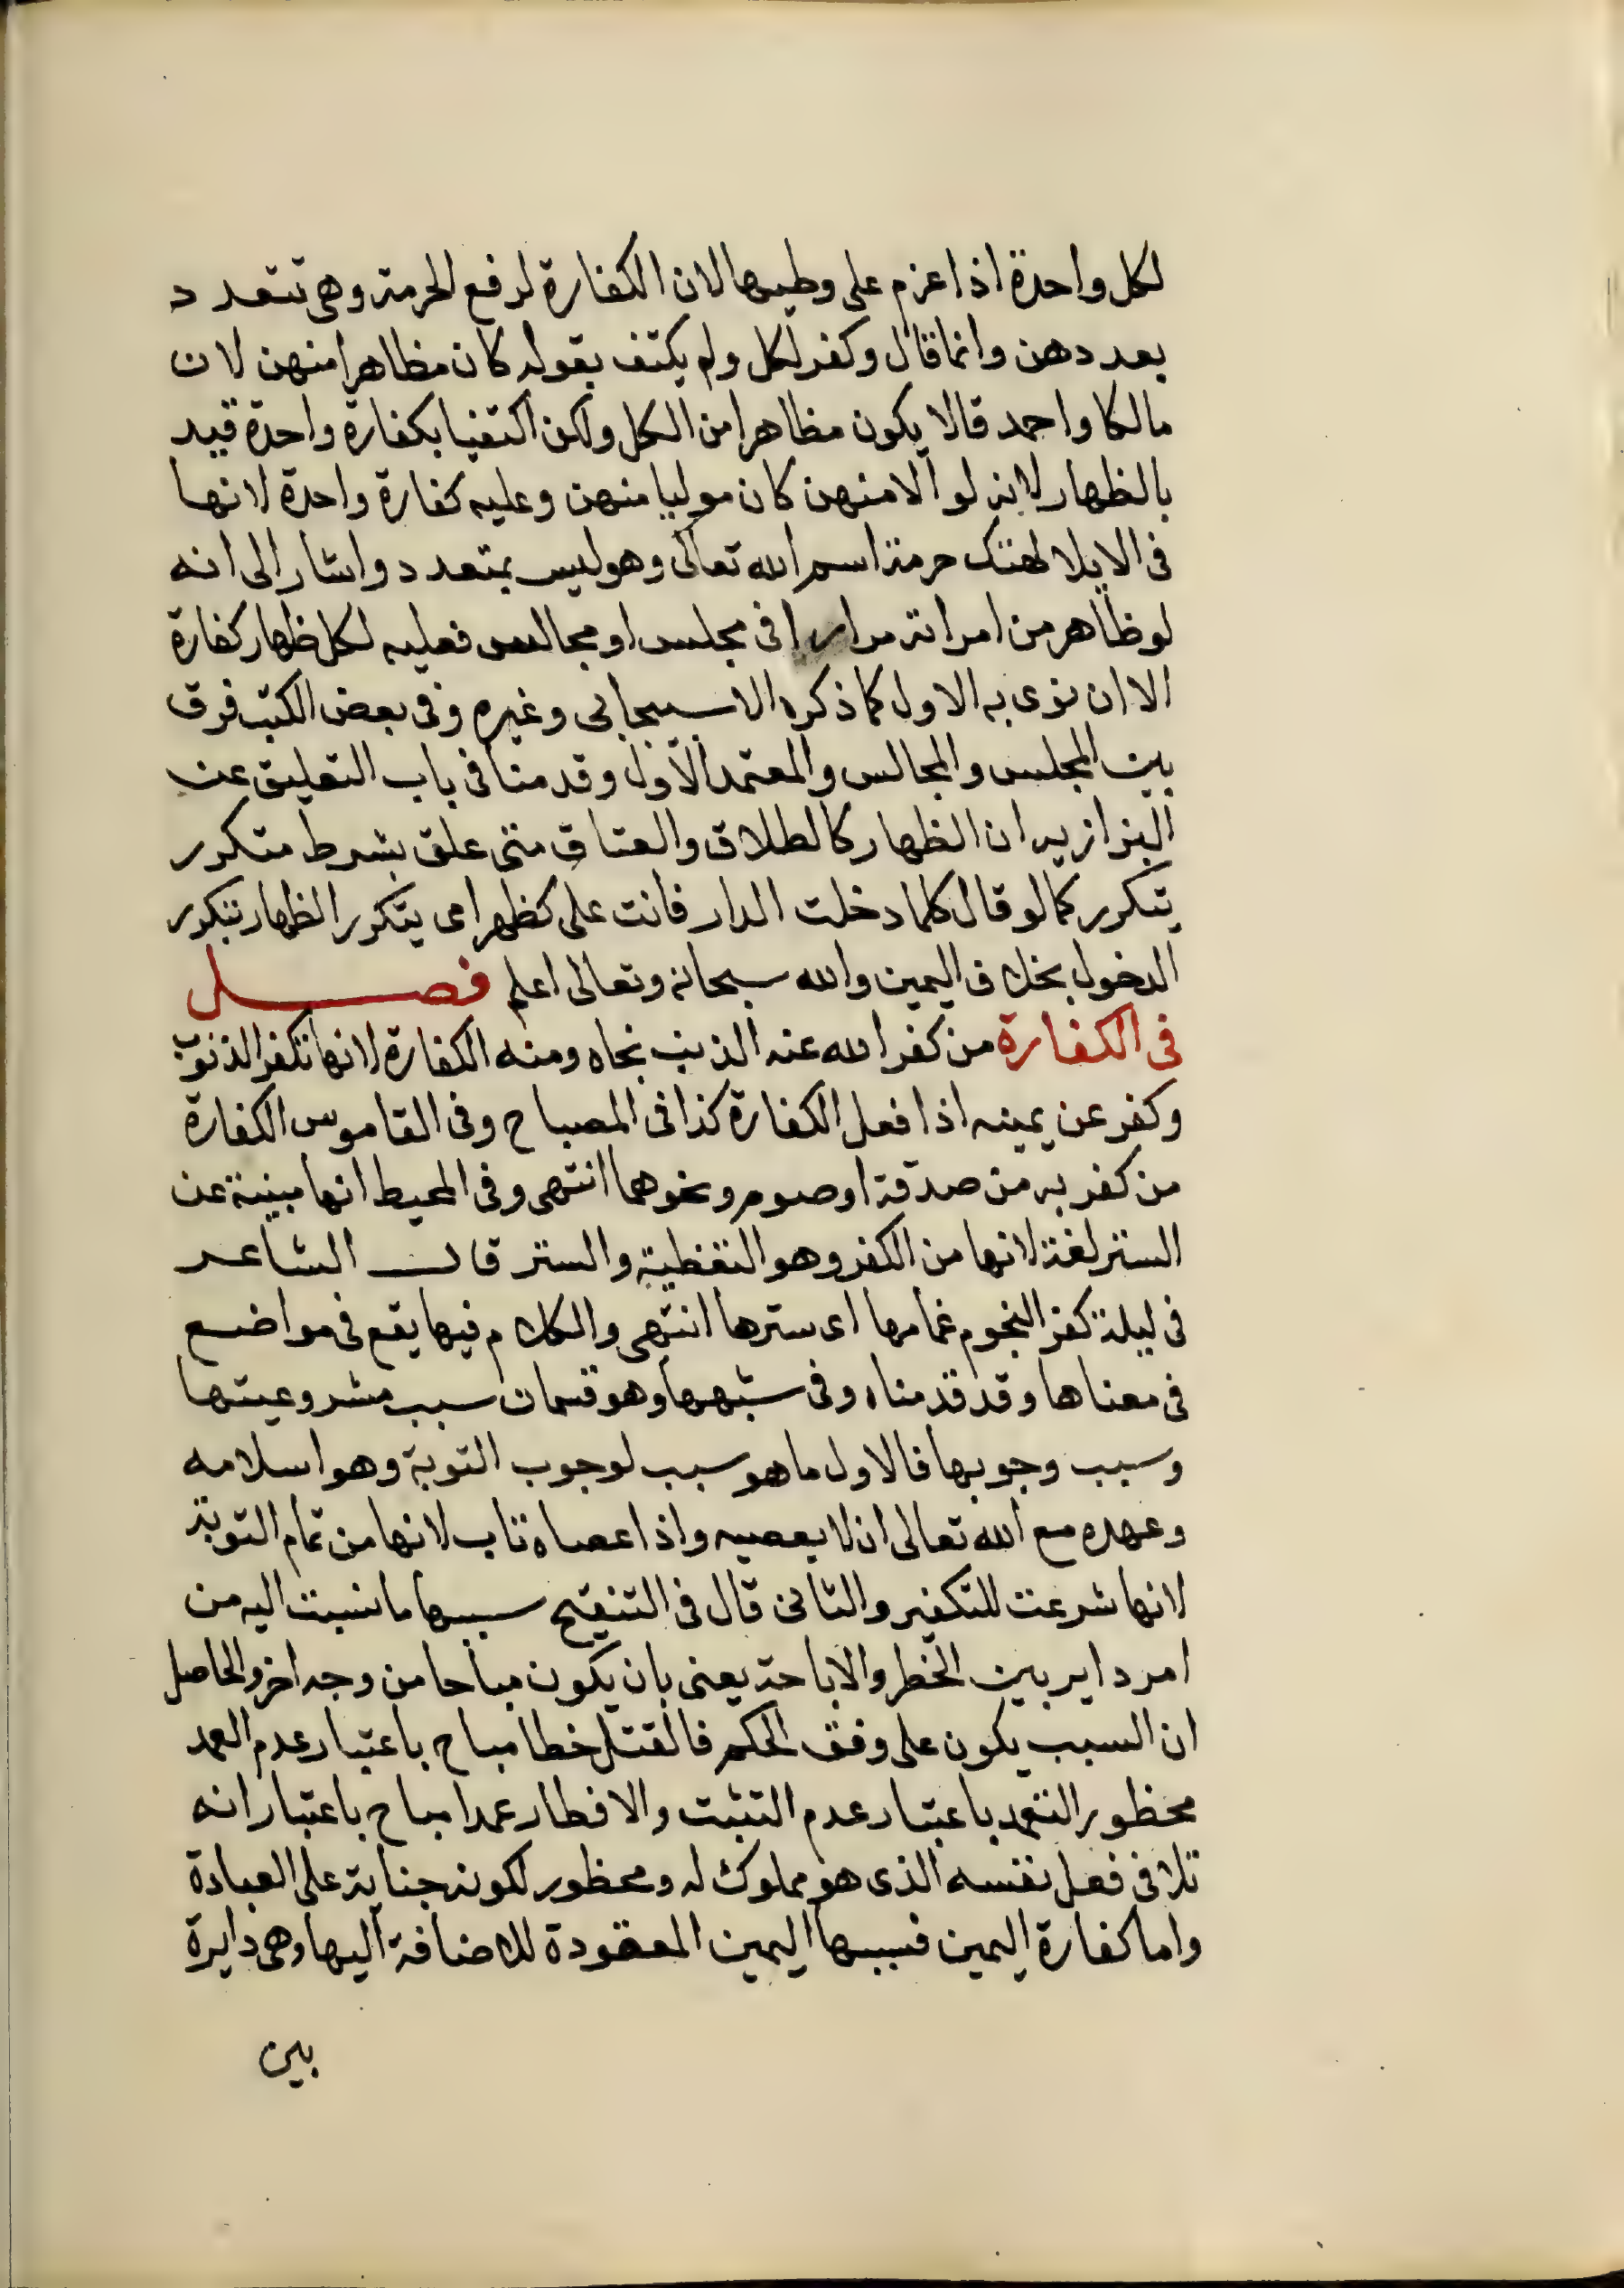 لكل واحدة اذا عزم على وطيها لان الكفارة لرفع الحرمة وهى تتعدد
بعددهن وانما قال وكفر لكل ولم يكتف بقوله كان مظاهرا منهن لان
مالكا واحمد قالا يكون مظاهرا من الكل ولكن اكتفيا بكفارة واحدة قيد
بالظهار لانه لو آلا منهن كان موليا منهن وعليه كفارة واحدة لانها
فى الايلا لهتك حرمة اسم الله تعالى وهو ليس بمتعدد واشار الى انه
لو ظاهر من امراته مرارا فى مجلس او مجالس فعليه لكل ظهار كفارة
الا ان نوى به الاول كما ذكره الاسبيجابى وغيره وفى بعض الكتب فرق
بين المجلس والمجالس والمعتمد الاول وقدمنا فى باب التعليق عن
البزازيه ان الظهار كالطلاق والعتاق متى علق بشرط متكرر
يتكرر كما لو قال كلما دخلت الدار فانت على كظهر امى يتكرر الظهار بتكرر
الدخول بخلاف اليمين والله سبحانه وتعالى اعلم فصل
فى الكفارة من كفر الله عنه الذنب محاه ومنه الكفارة لانها تكفر الذنوب
وكفر عن يمينه اذا فعل الكفارة كذا فى المصباح وفى القاموس الكفارة
من كفر به من صدقة او صوم ونحوهما انتهى وفى المحيط انها مبنية عن
الستر لغة لانها من الكفر وهو التغطية والستر قال الشاعر
فى ليلة كفر النجوم غمامها اى سترها انتهى والكلام فيها يقع فى مواضع
فى معناها وقد قدمناه وفى سببها وهو قسمان سبب مشروعيتها
وسبب وجوبها فالاول ما هو سبب لوجوب التوبة وهو اسلامه
وعهده مع الله تعالى ان لا يعصيه واذا عصاه تاب لانها من تمام التوبة
لانها شرعت للتكفير والثانى قال فى التنقيح سببها ما نسبت اليه من
امر داير بين الخطر والاباحة يعنى بان يكون مباحا من وجه اخر والحاصل
ان السبب يكون على وفق الحكم فالقتل خطا مباح باعتبار عدم العمد
محظور التعمد باعتبار عدم التثبت والافطار عمدا مباح باعتبار انه
تلافى فعل نفسه الذى هو مملوك له ومحظور لكونه جناية على العبادة
واما كفارة اليمين فسببها اليمين المعقودة للاضافة اليها وهى دايرة
بين